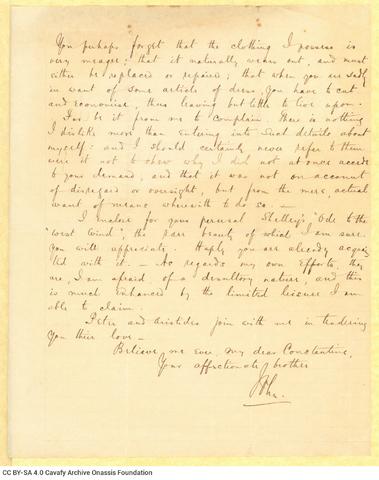 You perhaps forget that the clothing I possess is
very meagre; that it naturally wears out, and must
either be replaced or repaired; that when you are sadly
in want of some articles of dress, you have to cut
and economise, thus leaving but little to live upon.
Far be it from me to complain. There is nothing
I dislike more than entering into such details about
myself: and I should certainly never refer to them
were it not to shew why I did not at once accede
to your demand, and that it was not on account
of disregard or oversight, but from the mere, actual
want of means wherewith to do so. —
I enclose for your perusal Shelley's "Ode to the
West Wind", the rare beauty of which I am sure
you will appreciate. Haply you are already acquain-
ted with it. — As regards my own efforts, they
are, I am afraid, of a desultory nature, and this
is much enhanced by the limited leisure I am
able to claim.
Peter and Aristides join with me in tendering
you their love —
Believe me ever, my dear Constantine,
Your affectionate brother
John.
CC BY-SA 4.0 Cavafy Archive Onassis Foundation